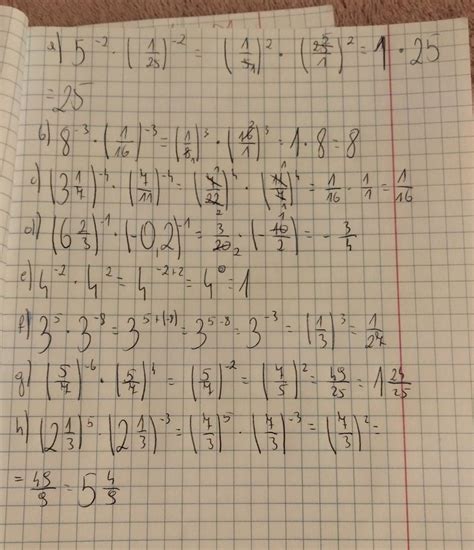 a) 5^-2 · (1/25)^-2 = (1/5)^2 · (25/1)^2 = 1 · 25
= 25
b) 8^-3 · (1/16)^-3 = (1/8)^3 · (16/1)^3 = 1 · 8 = 8
c) (3 1/7)^-4 · (7/11)^-4 = (7/22)^4 · (11/7)^4 = 1/16 · 1/1 = 1/16
d) (6 2/3)^-1 · (-0,2)^-1 = 3/20 · (-10/2) = -3/4
e) 4^-2 · 4^2 = 4^-2+2 = 4^0 = 1
f) 3^5 · 3^-8 = 3^5+(-8) = 3^5-8 = 3^-3 = (1/3)^3 = 1/27
g) (5/7)^-6 · (5/7)^4 = (5/7)^-2 = (7/5)^2 = 49/25 = 1 24/25
h) (2 1/3)^5 · (2 1/3)^-3 = (7/3)^5 · (7/3)^-3 = (7/3)^2 =
= 49/9 = 5 4/9